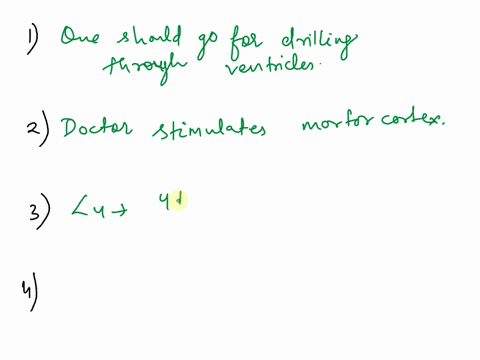 1) One should go for drilling
through ventricles.
2) Doctor stimulates mortor cortex.
3) L4 →
4)